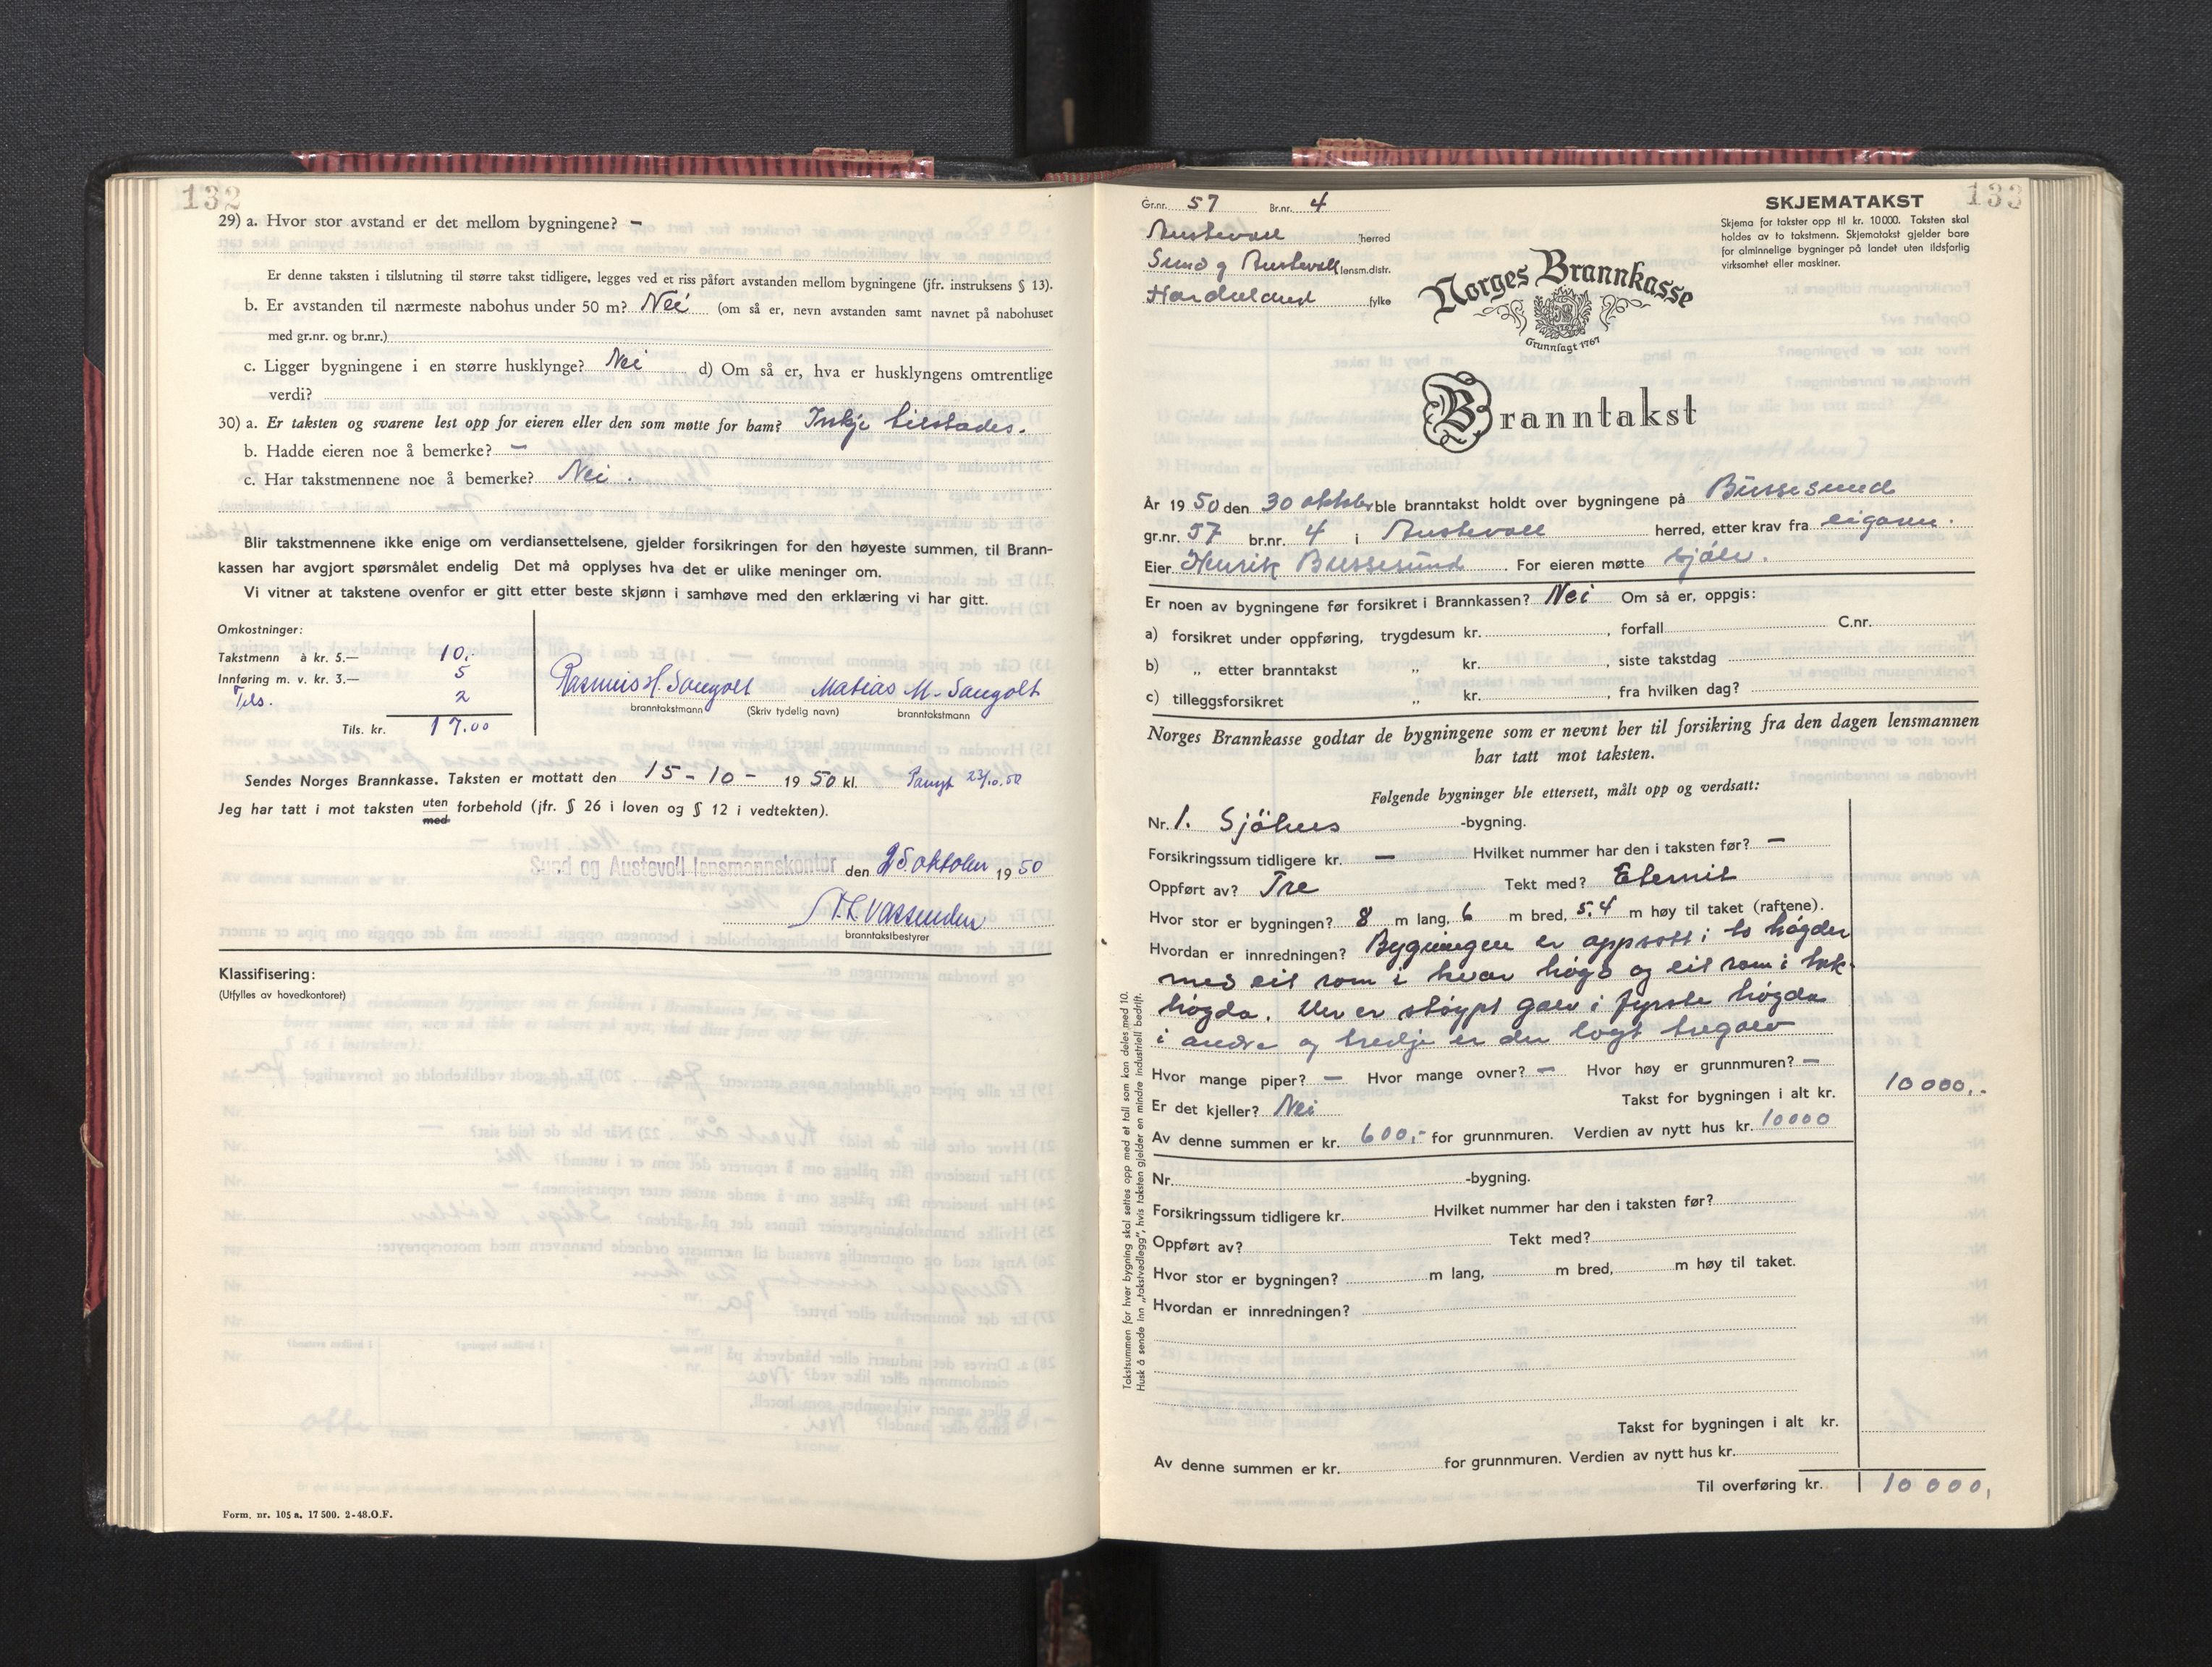 132
29) a. Hvor stor avstand er det mellom bygningene? –
Er denne taksten i tilslutning til større takst tidligere, legges ved et riss påført avstanden mellom bygningene (jfr. instruksens § 13).
b. Er avstanden til nærmeste nabohus under 50 m? Nei (om så er, nevn avstanden samt navnet på nabohuset
med gr.nr. og br.nr.)
c. Ligger bygningene i en større husklynge? Nei d) Om så er, hva er husklyngens omtrentlige
verdi?
30) a. Er taksten og svarene lest opp for eieren eller den som møtte for ham? Inkje tilstades.
b. Hadde eieren noe å bemerke? –
c. Har takstmennene noe å bemerke? Nei.
Blir takstmennene ikke enige om verdiansettelsene, gjelder forsikringen for den høyeste summen, til Brann-
kassen har avgjort spørsmålet endelig Det må opplyses hva det er ulike meninger om.
Vi vitner at takstene ovenfor er gitt etter beste skjønn i samhøve med den erklæring vi har gitt.
Omkostninger:
Takstmenn à kr. 5.— 10.-
Innføring m. v. kr. 3.— 5
Tils. 2
Tils. kr. 17.00
Rasmus H. Saugolt Matias M. Saugolt
branntakstmann (Skriv tydelig navn) branntakstmann
Sendes Norges Brannkasse. Taksten er mottatt den 15 - 10 - 1950 kl. 23/10.50
Jeg har tatt i mot taksten uten forbehold (jfr. § 26 i loven og § 12 i vedtekten).
med
Sund og Austevoll lensmannskontor den 25. oktober 1950
branntakstbestyrer
Klassifisering:
(Utfylles av hovedkontoret)
Form. nr. 105 a. 17 500. 2-48.O.F.
133
Gr.nr. 57 Br.nr. 4
Austevoll herred
Sund og Austevoll lensm.distr.
Hordaland fylke
SKJEMATAKST
Skjema for takster opp til kr. 10000. Taksten skal
holdes av to takstmenn. Skjematakst gjelder bare
for alminnelige bygninger på landet uten ildsfarlig
virksomhet eller maskiner.
Norges Brannkasse
Grunnlagt 1767
Branntakst
År 1950 den 30 oktober ble branntakst holdt over bygningene på Bussesund
gr.nr. 57 br.nr. 4 i Austevoll herred, etter krav fra eigaren.
Eier Henrik Bussesund. For eieren møtte sjølv.
Er noen av bygningene før forsikret i Brannkassen? Nei Om så er, oppgis:
a) forsikret under oppføring, trygdesum kr. , forfall C.nr.
b) „ etter branntakst „ kr. , siste takstdag
c) tilleggsforsikret „ kr. , fra hvilken dag?
Norges Brannkasse godtar de bygningene som er nevnt her til forsikring fra den dagen lensmannen
har tatt mot taksten.
Følgende bygninger ble ettersett, målt opp og verdsatt:
Nr. 1. Sjöhus -bygning.
Forsikringssum tidligere kr. – Hvilket nummer har den i taksten før? –
Oppført av? Tre Tekt med? Eternit
Hvor stor er bygningen? 8 m lang, 6 m bred, 5,4 m høy til taket (raftene).
Hvordan er innredningen? Bygningen er oppsatt i to høgder
med eit rom i hvar høgd og eit rom i tak-
høgda. Der er støypt golv i fyrste høgda
i andre og tredje er der lagt tregolv
Hvor mange piper? – Hvor mange ovner? – Hvor høy er grunnmuren? –
Er det kjeller? Nei Takst for bygningen i alt kr. 10 000,-
Av denne summen er kr. 600,- for grunnmuren. Verdien av nytt hus kr. 10000
Nr. -bygning.
Forsikringssum tidligere kr. Hvilket nummer har den i taksten før?
Oppført av? Tekt med?
Hvor stor er bygningen? m lang, m bred, m høy til taket.
Hvordan er innredningen?
Takst for bygningen i alt kr.
Av denne summen er kr. for grunnmuren. Verdien av nytt hus kr.
Til overføring kr. 10 000,
Takstsummen for hver bygning skal settes opp med et tall som kan deles med 10.
Husk å sende inn „takstvedlegg”, hvis taksten gjelder en mindre industriell bedrift.